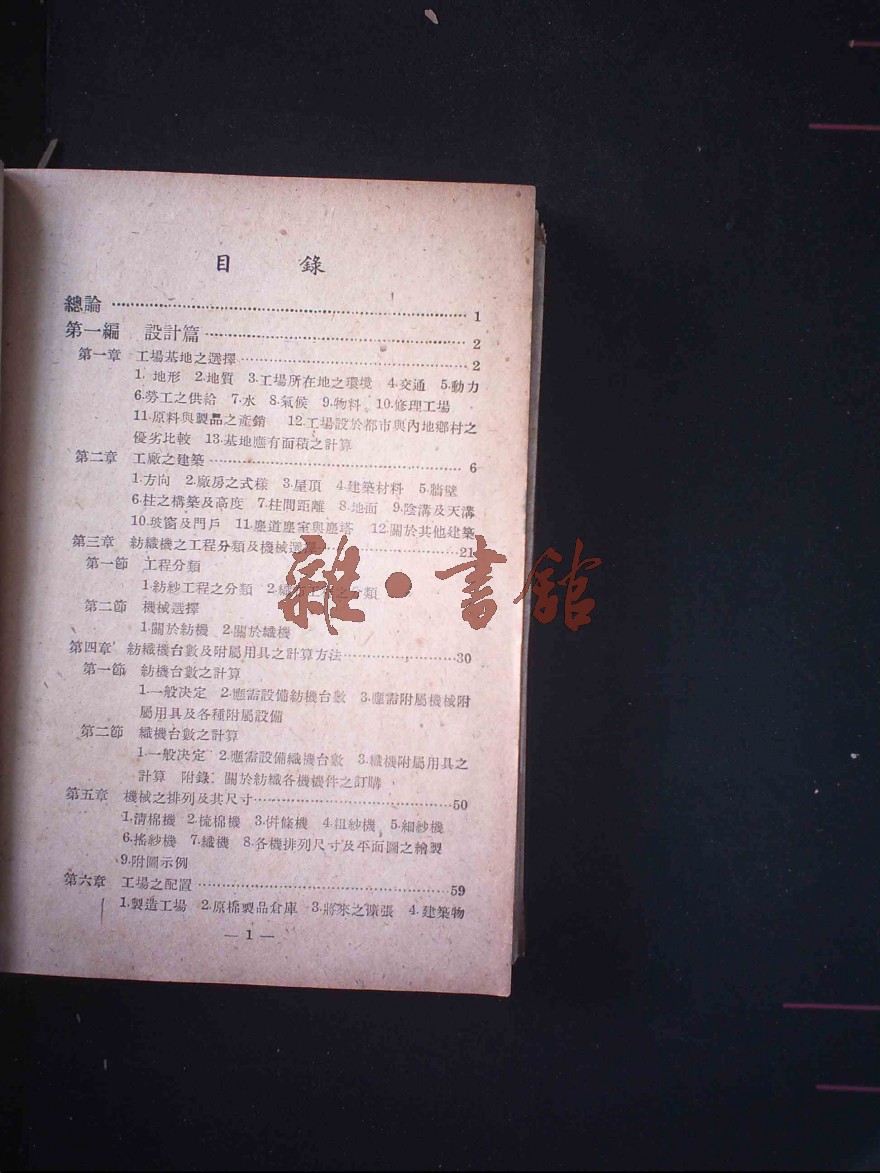 目 錄
總論 1
第一編 設計篇 2
第一章 工場基地之選擇 2
1. 地形 2.地質 3.工場所在地之環境 4.交通 5.動力
6.勞工之供給 7.水 8.氣候 9.物料 10.修理工場
11.原料與製品之產銷 12.工場設於都市與內地鄉村之
優劣比較 13.基地應有面積之計算
第二章 工廠之建築 6
1.方向 2.廠房之式樣 3.屋頂 4.建築材料 5.牆壁
6.柱之構築及高度 7.柱間距離 8.地面 9.陰溝及天溝
10.玻窗及門戶 11.塵道塵室與塵塔 12.關於其他建築
第三章 紡織機之工程分類及機械選擇 21
第一節 工程分類
1.紡紗工程之分類 2.織布工程之分類
第二節 機械選擇
1.關於紡機 2.關於織機
第四章 紡織機台數及附屬用具之計算方法 30
第一節 紡機台數之計算
1.一般決定 2.應需設備紡機台數 3.應需附屬機械附
屬用具及各種附屬設備
第二節 織機台數之計算
1.一般決定 2.應需設備織機台數 3.織機附屬用具之
計算 附錄: 關於紡織各機機件之訂購
第五章 機械之排列及其尺寸 50
1.淸棉機 2.梳棉機 3.併條機 4.粗紗機 5.細紗機
6.搖紗機 7.織機 8.各機排列尺寸及平面圖之繪製
9.附圖示例
第六章 工場之配置 59
1.製造工場 2.原棉製品倉庫 3.將來之擴張 4.建築物
— 1 —
雜·書館